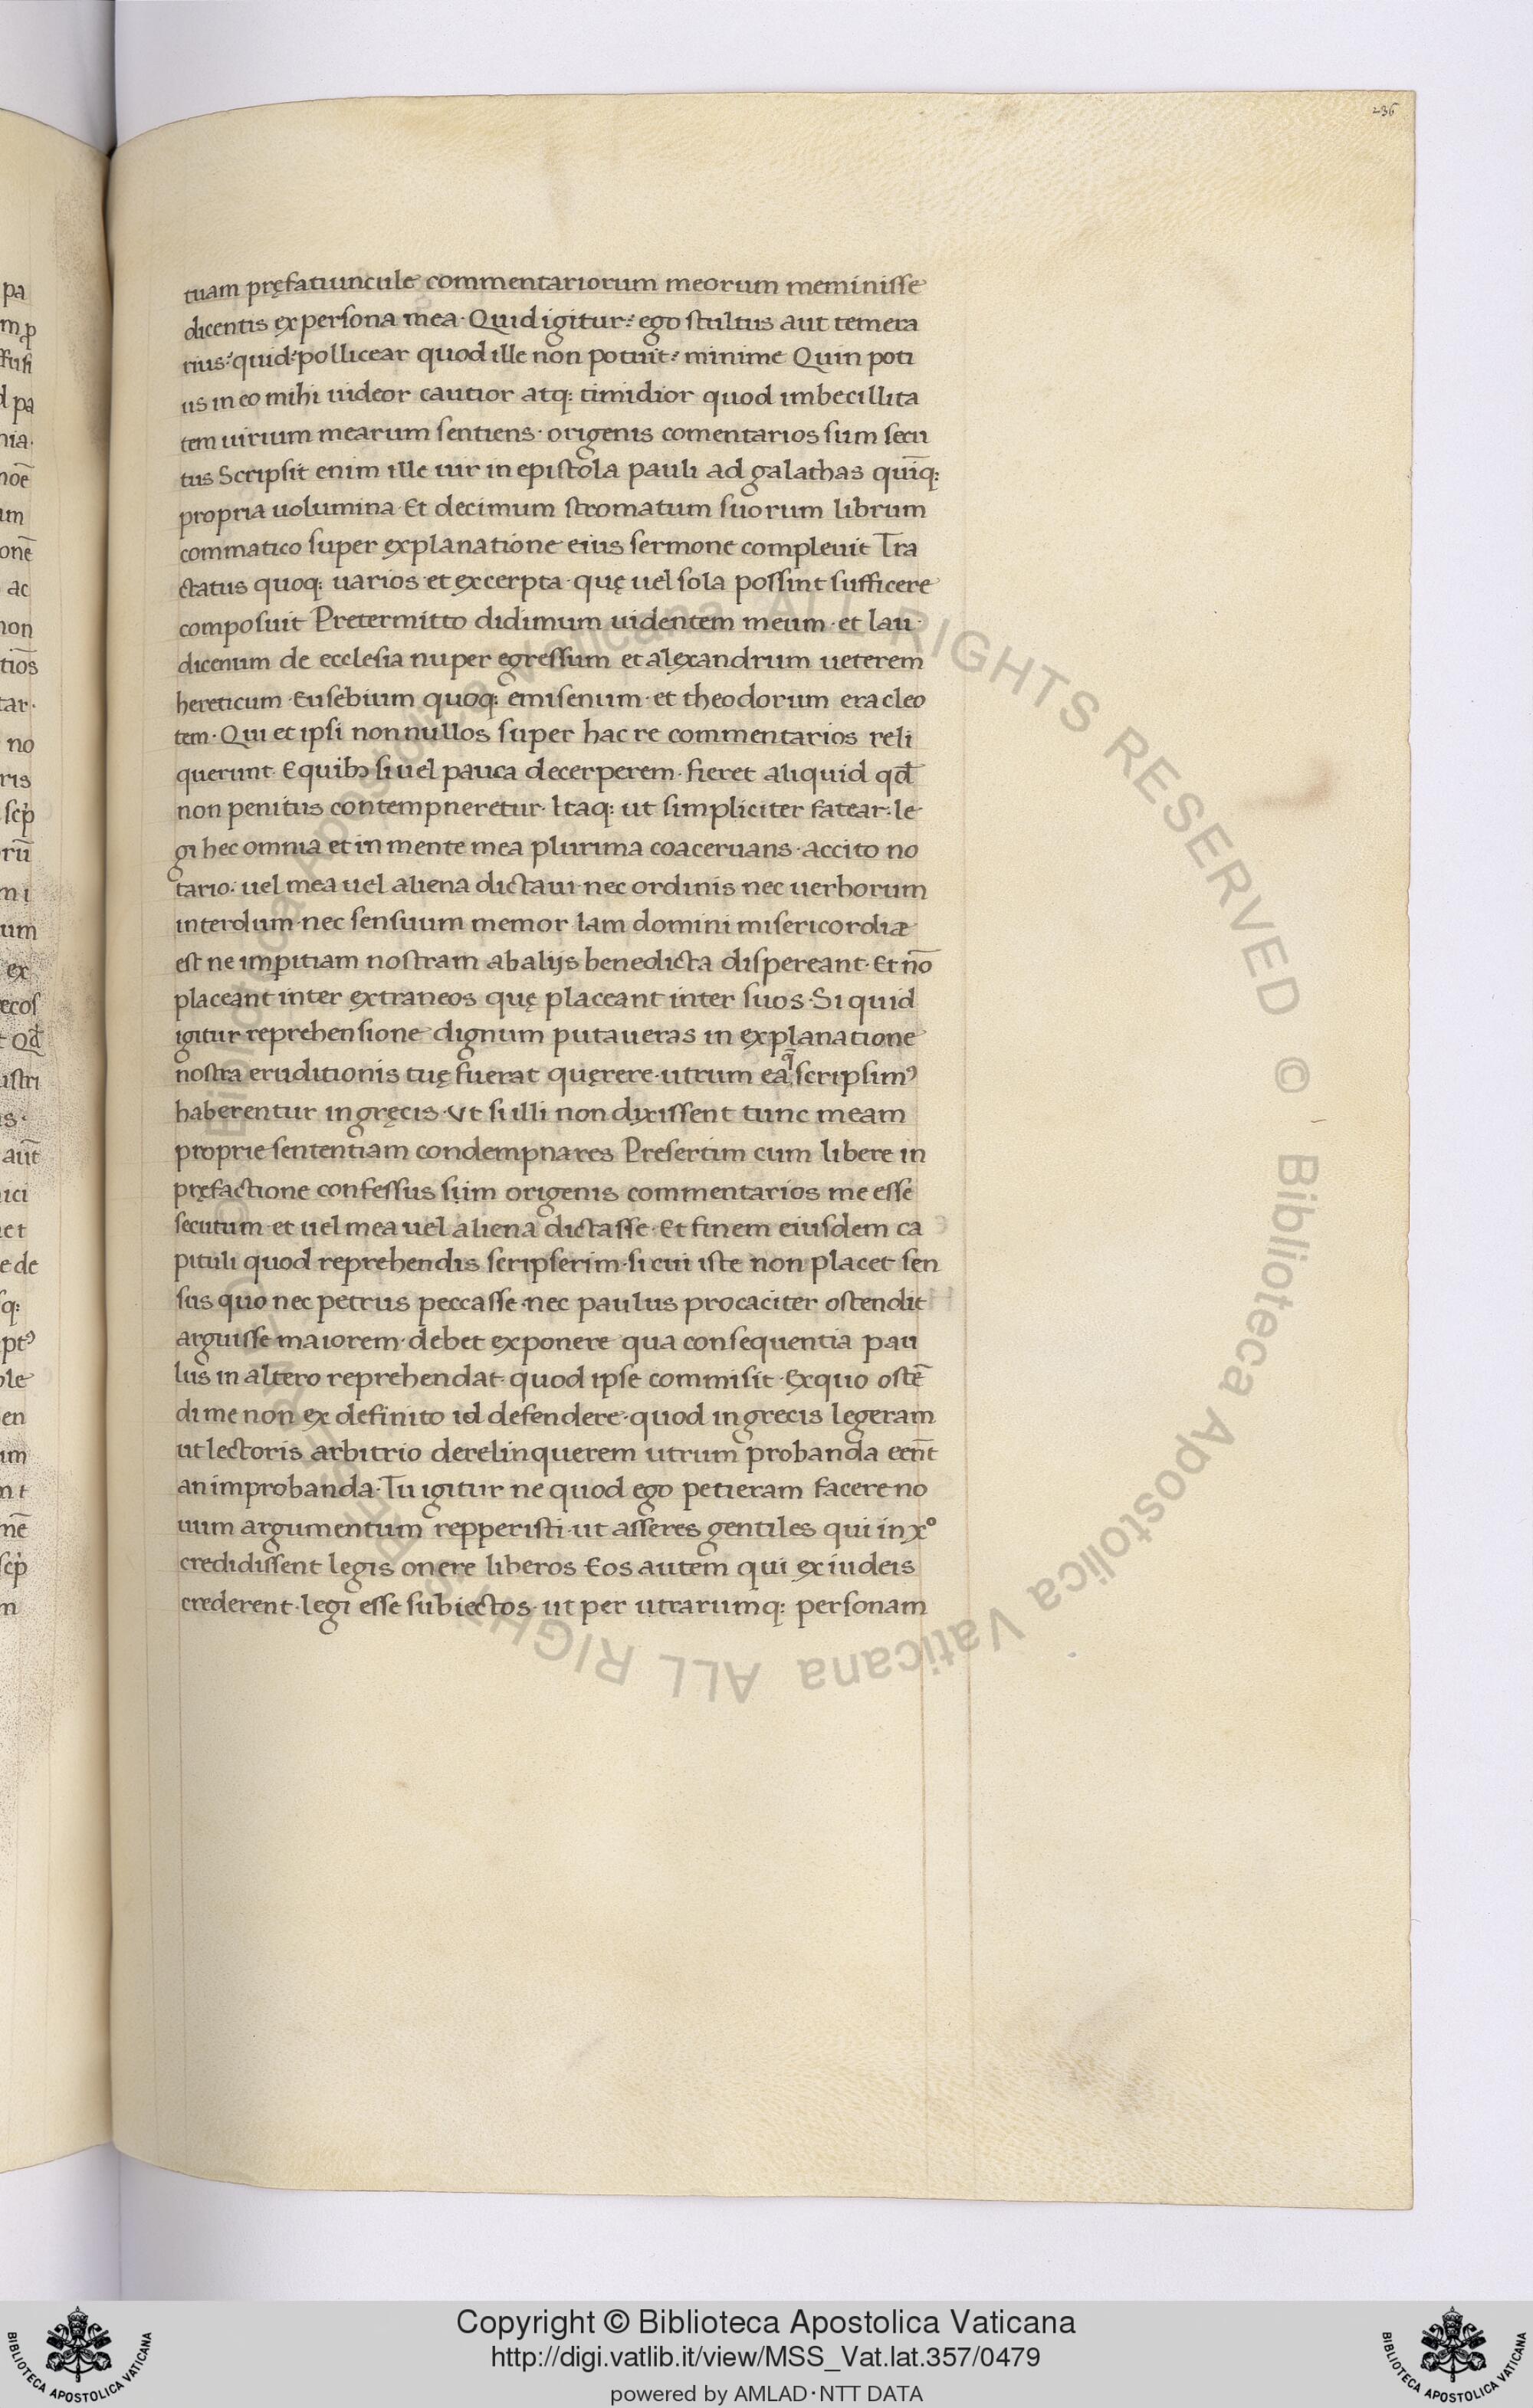 236
tuam pręfatiuncule commentariorum meorum meminisse
dicentis ex persona mea · Quid igitur? ego stultus aut temera
rius? quid? pollicear quod ille non potuit? minime Quin poti
us in eo mihi uideor cautior atq: timidior quod imbecillita
tem uirium mearum sentiens · origenis comentarios sum secu
tus Scripsit enim ille uir in epistola pauli ad galathas quīq:
propria uolumina · Et decimum stromatum suorum librum
commatico super explanatione eius sermone compleuit Tra
ctatus quoq: uarios et excerpta · quę uel sola possint sufficere
composuit Pretermitto didimum uidentem meum · et lau ·
dicenum de ecclesia nuper egressum et alexandrum ueterem
hereticum · Eusebium quoq: emisenum · et theodorum eracleo
tem · Qui et ipsi nonnullos super hac re commentarios reli
querunt · E quibꝫ si uel pauca decerperem · fieret aliquid qđ
non penitus contempneretur · Itaq: ut simpliciter fatear: le
gi hec omnia et in mente mea plurima coaceruans · accito no
tario: uel mea uel aliena dictaui · nec ordinis nec uerborum
interdum · nec sensuum memor Iam domini misericordiæ
est ne imꝑitiam nostram ab alijs benedicta dispereant · Et nō
placeant inter extraneos quę placeant inter suos · Si quid
igitur reprehensione dignum putaueras in explanatione
nostra eruditionis tuę fuerat quęrere · utrum ea q̄ scripsimꝰ
haberentur in gręcis · Vt si illi non dixissent tunc meam
proprie sententiam condempnares Presertim cum libere in
pręfactione confessus sum origenis commentarios me esse
secutum · et uel mea uel aliena dictasse · Et finem eiusdem ca
pituli quod reprehendis scripserim · si cui iste non placet sen
sus quo nec petrus peccasse · nec paulus procaciter ostendit
arguisse maiorem · debet exponere qua consequentia pau
lus in altero reprehendat · quod ipse commisit · Ex quo ostē
di me non ex definito id defendere · quod in grecis legeram
ut lectoris arbitrio derelinquerem utrum probanda eēnt
an improbanda · Tu igitur ne quod ego petieram facere no
uum argumentum repperisti · ut asseres gentiles qui in xº
credidissent legis onere liberos Eos autem qui ex iudeis
crederent · legi esse subiectos · ut per utrarumq: personam
Copyright © Biblioteca Apostolica Vaticana
http://digi.vatlib.it/view/MSS_Vat.lat.357/0479
powered by AMLAD·NTT DATA